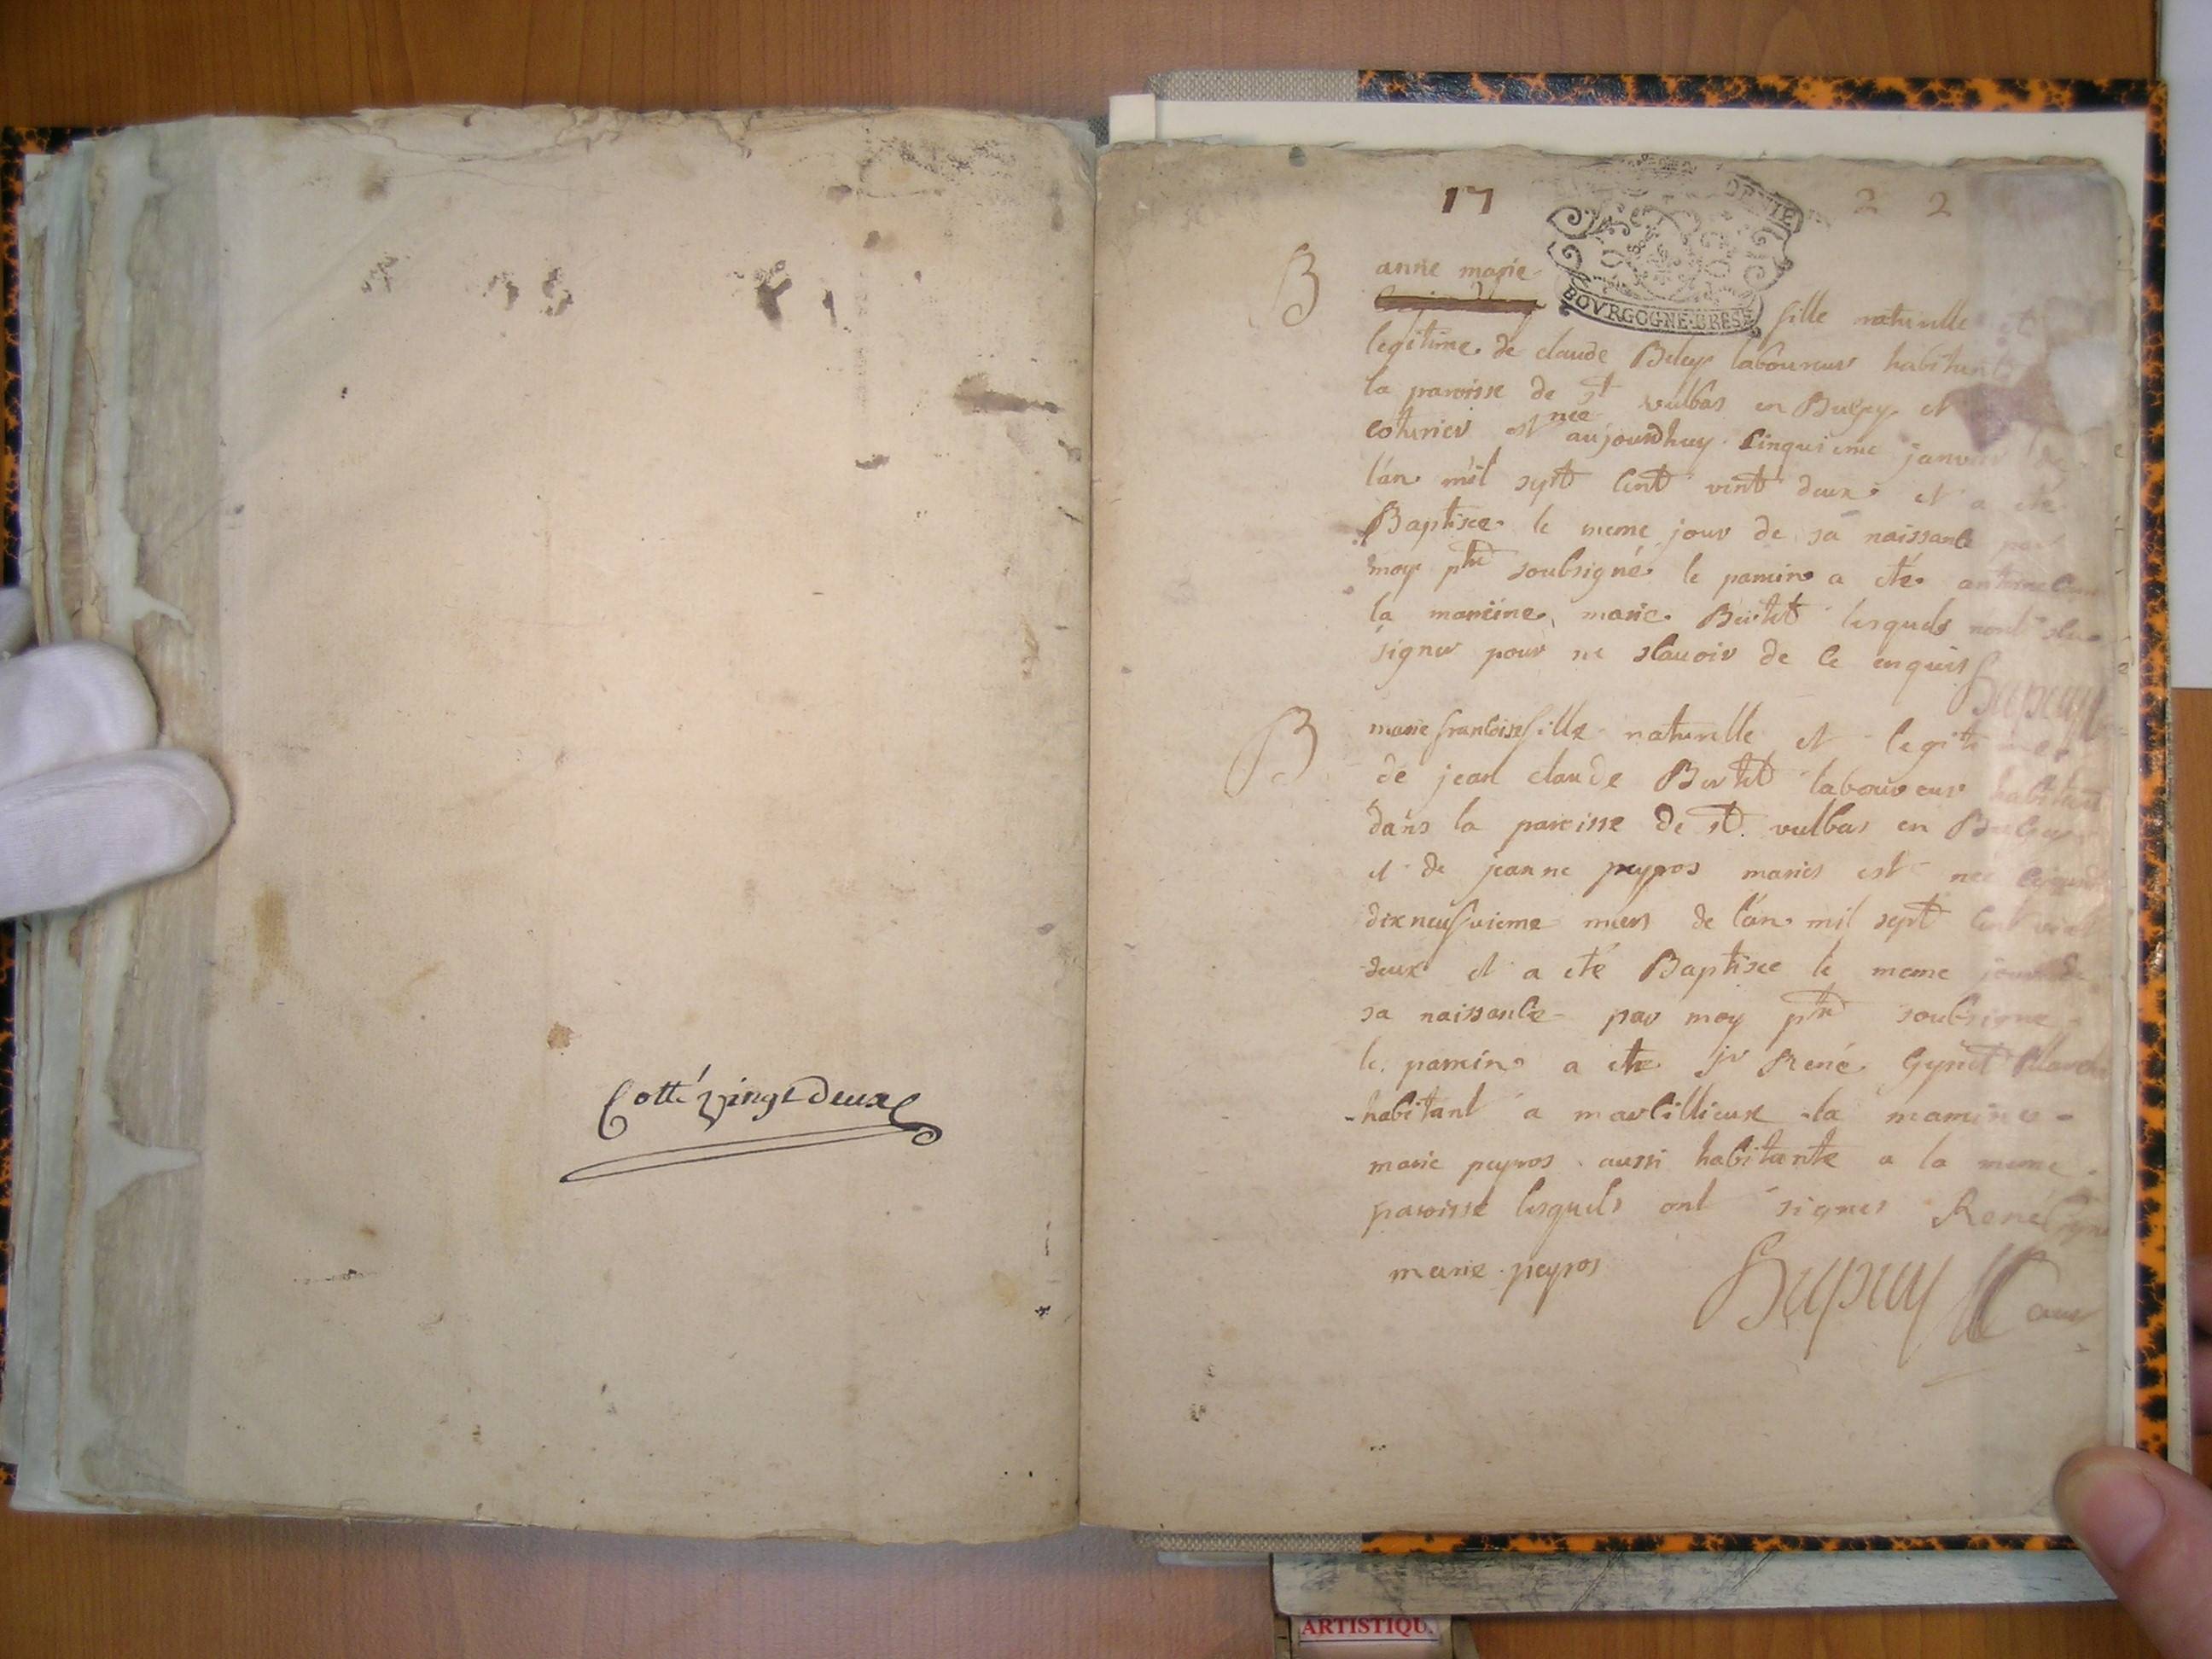 Cotté vingt deux
17 2 2
BOVRGOGNE BRESSE
B anne marie
fille naturelle et
legitime de claude Beley laboureur habitant
la paroisse de st vulbas en Bugey et
coturier est née aujourdhuy cinquieme janvier de
l'an mil sept cent vint deux et a eté
Baptisee le meme jour de sa naissance par
moy ptre soubsigné le parrein a eté antoine
la marreine marie Bertet lesquels nont sceu
signer pour ne scavoir de ce enquis
Dupuy
B marie francoise fille naturelle et legitime
de jean claude Bertet laboureur habitant
dans la paroisse de st. vulbas en Bugey
et de jeanne peyros maries est nee
dix neufvieme mars de l'an mil sept cent vint
deux et a eté Baptisee le meme jour de
sa naissance par moy ptre soubsigne
le parrein a ete sr René Gynet
habitant a marcillieux la marreine
marie peyros aussi habitante a la meme
paroisse lesquels ont signes René Gynet
marie peyros
Dupuy curé
ARTISTIQU